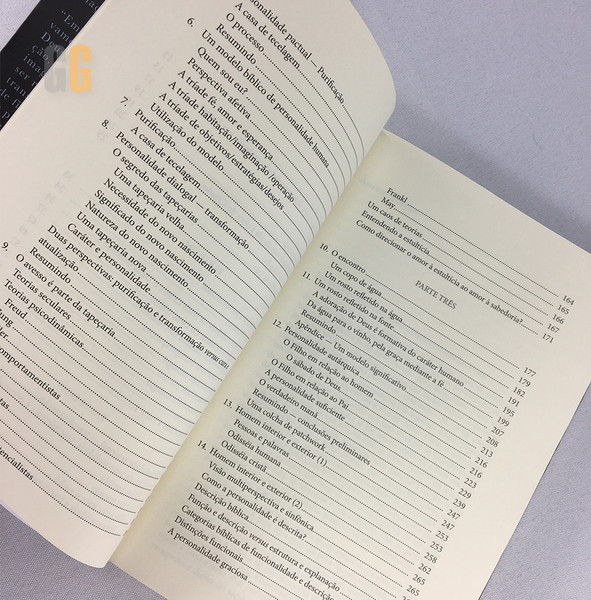 GG
onalidade pactual — Purificação
A casa de tecelagem
O processo
Resumindo
6. Um modelo bíblico de personalidade humana
Quem sou eu?
Perspectiva afetiva
A tríade fé, amor e esperança
A tríade habitação/imaginação/operação
A tríade de objetivos/estratégias/desejos
Utilização do modelo
7. Purificação
A casa de tecelagem
8. Personalidade dialogal — transformação
O segredo das tapeçarias
Uma tapeçaria velha
Necessidade do novo nascimento
Significado do novo nascimento
Natureza do novo nascimento
Uma tapeçaria nova
Caráter e personalidade
Duas perspectivas; purificação e transformação versus
atualização
Resumindo
9. O avesso é parte da tapeçaria
Teorias seculares
Teorias psicodinâmicas
Freud
ung
er
omportamentistas
stas
encialistas
Frankl
May 164
Um caos de teorias 165
Entendendo a estultícia 166
Como direcionar o amor à estultícia ao amor à sabedoria? 167
171
PARTE TRÊS
10. O encontro
Um copo de água 177
Um rosto refletido na água 179
11. Um rosto refletido na fonte 182
A adoração de Deus é formativa do caráter humano 191
Da água para o vinho, pela graça mediante a fé 195
Resumindo 199
Apêndice — Um modelo significativo 207
12. Personalidade autárquica 208
O Filho em relação ao homem 213
O sábado de Deus 216
O Filho em relação ao Pai 216
A personalidade suficiente 223
O verdadeiro maná 229
Resumindo — conclusões preliminares 239
Uma colcha de patchwork 247
13. Homem interior e exterior (1) 247
Pessoas e palavras 253
Odisséia humana 253
Odisséia cristã 258
14. Homem interior e exterior (2) 262
Visão multiperspectiva e sinfônica 265
Como a personalidade é descrita? 265
Descrição bíblica
Função e descrição versus estrutura e explanação
Categorias bíblicas de funcionalidade e descrição
Distinções funcionais
A personalidade graciosa